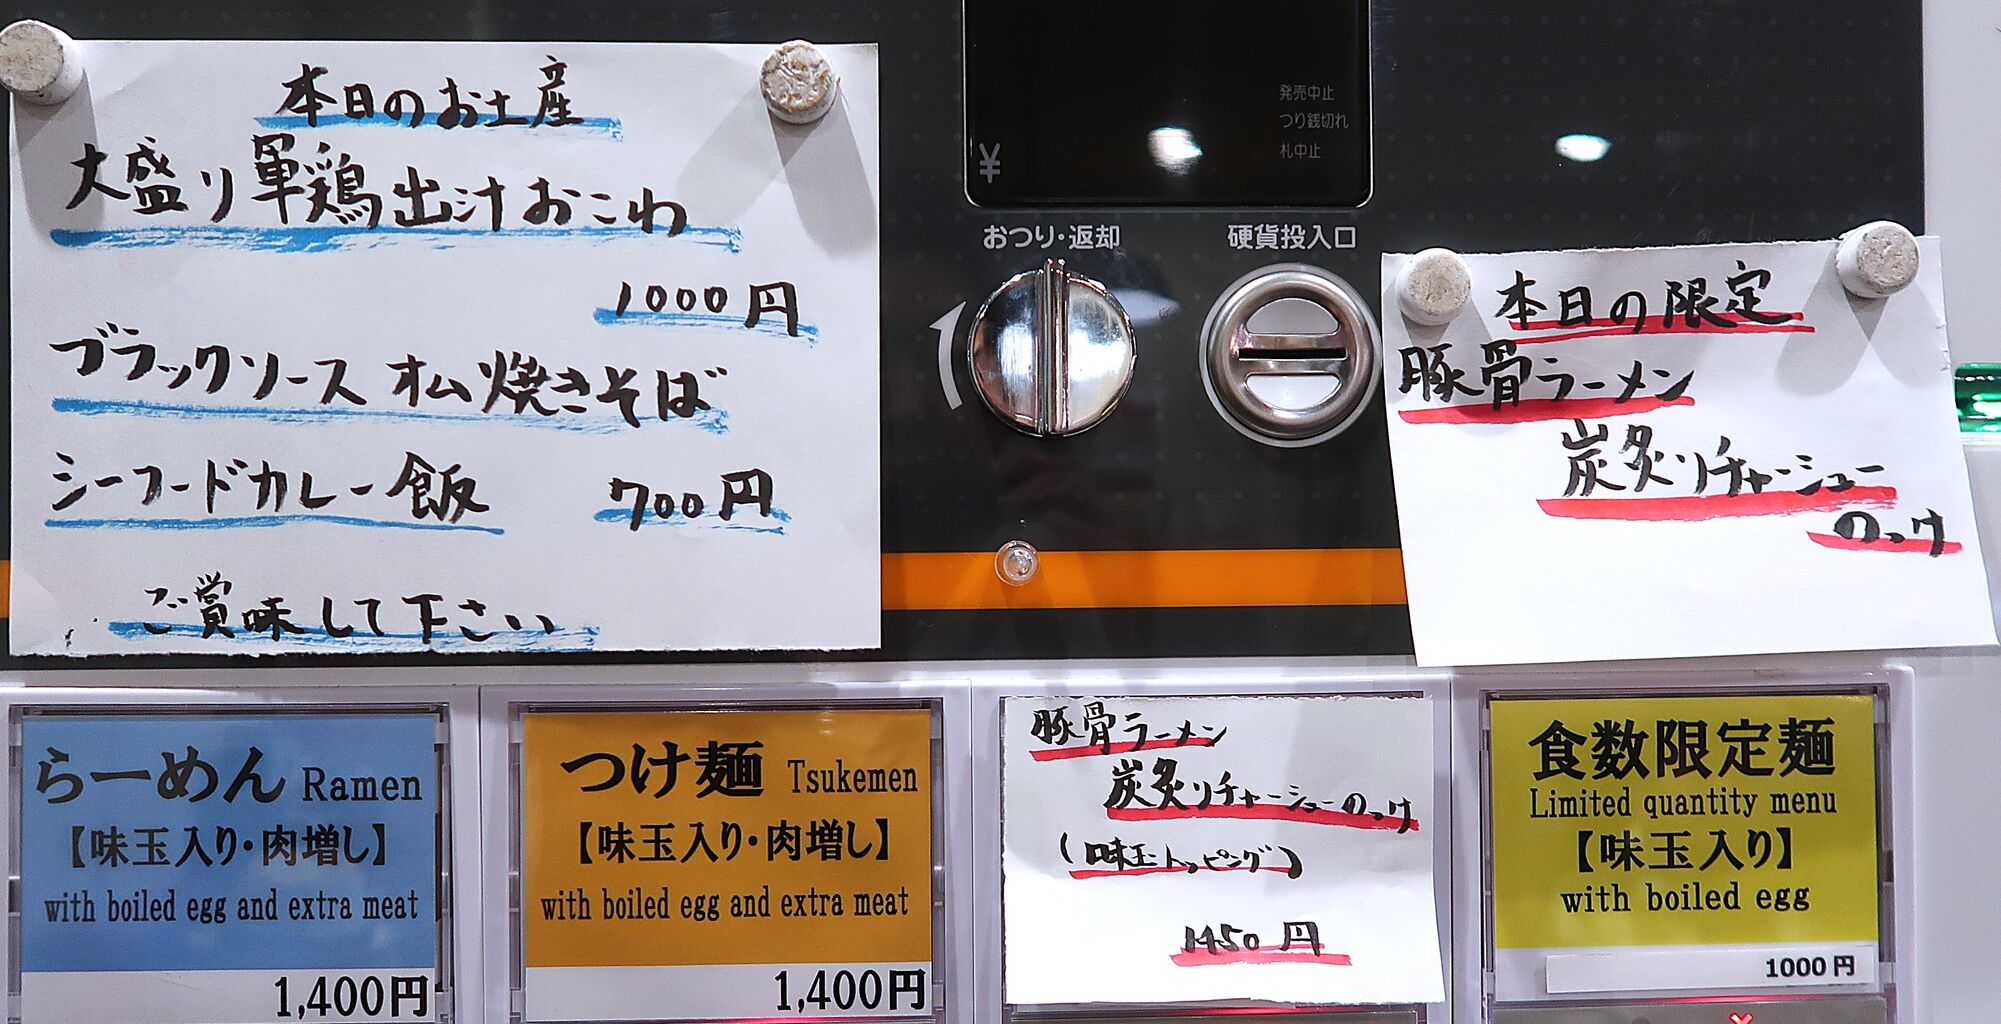 本日のお土産
大盛り軍鶏出汁おこわ
1000円
ブラックソースオム焼きそば
シーフードカレー飯 700円
ご賞味して下さい
発売中止
つり銭切れ
札中止
¥
おつり・返却
硬貨投入口
本日の限定
豚骨ラーメン
炭炙りチャーシュー
のっけ
らーめん Ramen
【味玉入り・肉増し】
with boiled egg and extra meat
1,400円
つけ麺 Tsukemen
【味玉入り・肉増し】
with boiled egg and extra meat
1,400円
豚骨ラーメン
炭炙りチャーシューのっけ
(味玉トッピング)
1450円
食数限定麺
Limited quantity menu
【味玉入り】
with boiled egg
1000円